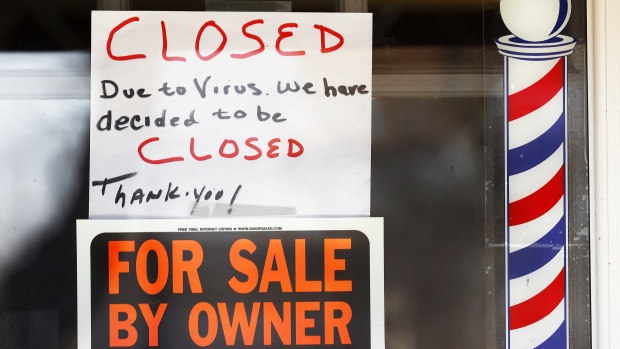 CLOSED
Due to Virus. We have
decided to be
CLOSED
Thank.you!
FREE TRIAL INTERNET LISTING @ WWW.BARPSALES.COM
FOR SALE
BY OWNER